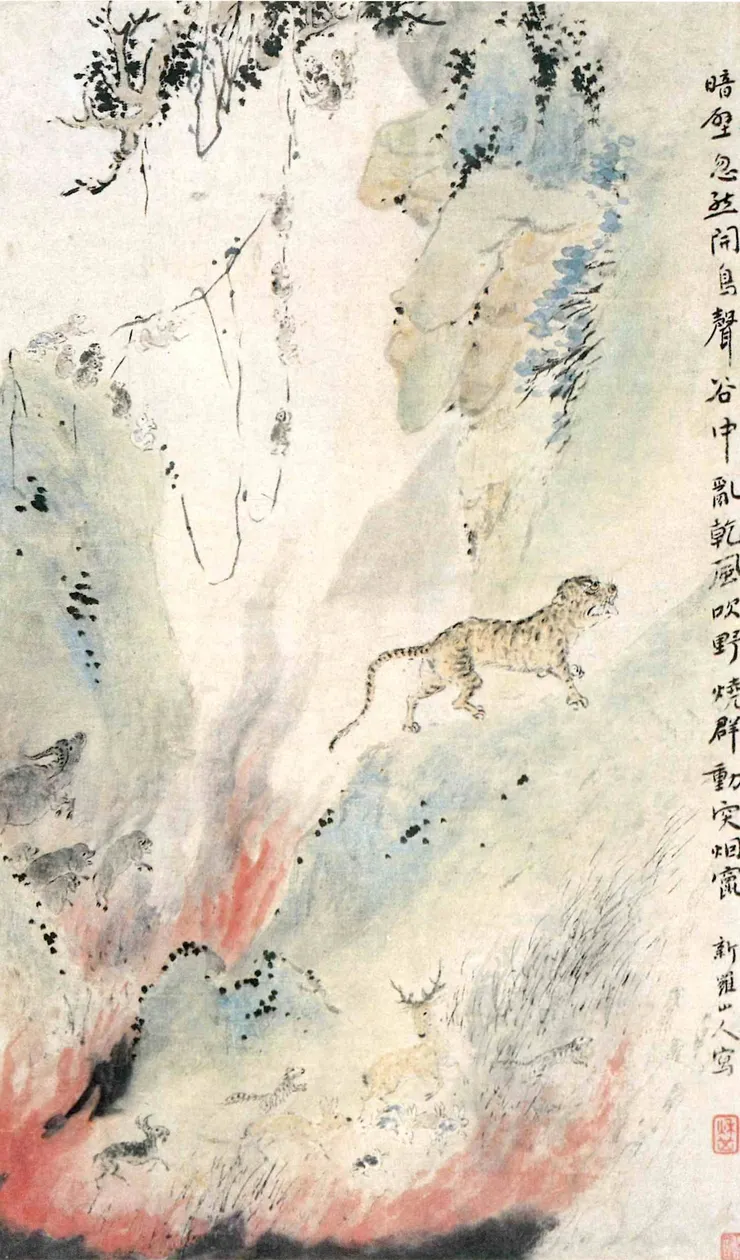 暗壁忽然開鳥聲谷中亂乾風吹野燒群動突烟竄 新羅山人寫